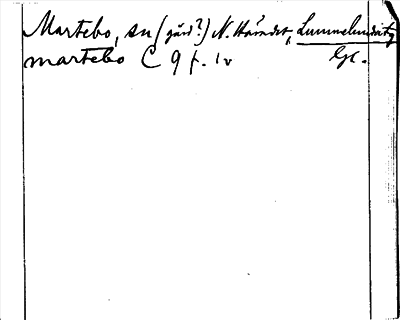 Martebo, sn (gård?) N. Häradet, Lummelunda tg
martebo C 9 f. 1v Gl.